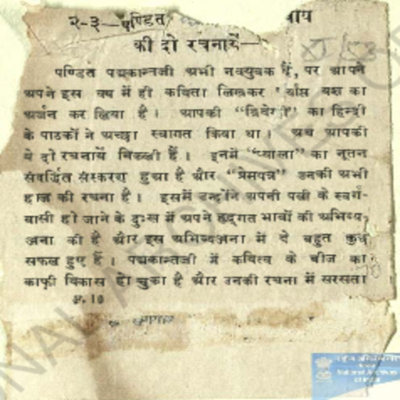 २-३—पण्डित
की दो रचनायें—
पण्डित पद्मकान्तजी अभी नवयुवक हैं, पर आपने
अपने इस वय में ही कविता लिखकर यश का
अर्जन कर लिया है। आपकी “त्रिवेणी” का हिन्दी
के पाठकों ने अच्छा स्वागत किया था। अब आपकी
ये दो रचनायें निकली हैं। इनमें “प्याला” का नूतन
संवर्द्धित संस्करण हुआ है और “प्रेमपत्र” उनकी अभी
हाल की रचना है। इसमें उन्होंने अपनी पत्नी के स्वर्ग-
वासी हो जाने के दुःख में अपने हृद्गत भावों की अभिव्य-
ञ्जना की है और इस अभिव्यञ्जना में वे बहुत कुछ
सफल हुए हैं। पद्मकान्तजी में कवित्व के बीज का
काफ़ी विकास हो चुका है और उनकी रचना में सरसता